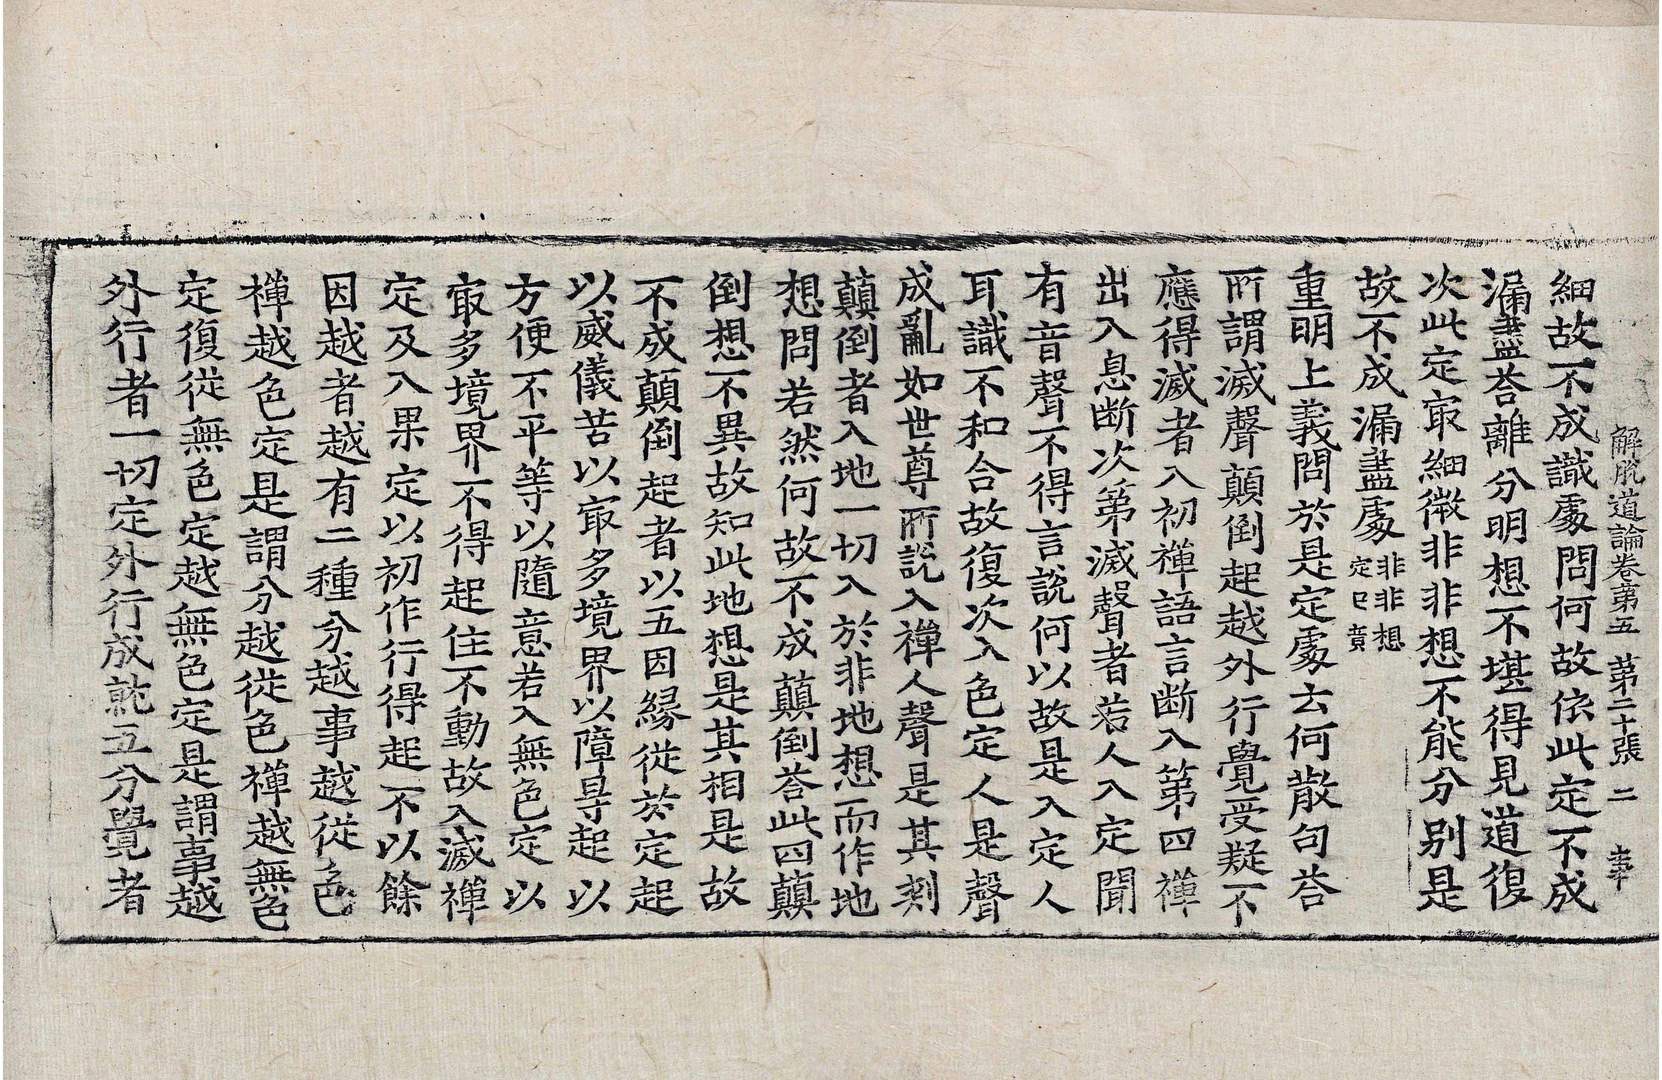 解脫道論卷第五 第二十張 二
細故不成識處問何故依此定不成
漏盡荅離分明想不堪得見道復
次此定㝡細微非非想不能分别是
故不成漏盡處非非想定已竟
重明上義問於是定處云何散句荅
所謂滅聲顛倒起越外行覺受疑不
應得滅者入初禪語言断入第四禪
出入息断次第滅聲者若人入定聞
有音聲不得言說何以故是入定人
耳識不和合故復次入色定人是聲
成亂如世尊所說入禪人聲是其刾
顛倒者入地一切入於非地想而作地
想問若然何故不成顛倒荅此四顛
倒想不異故知此地想是其相是故
不成顛倒起者以五因緣從於定起
以威儀苦以㝡多境界以障㝵起以
方便不平等以隨意若入無色定以
㝡多境界不得起住不動故入滅禪
定及入果定以初作行得起不以餘
因越者越有二種分越事越從色
禪越色定是謂分越從色禪越無色
定復從無色定越無色定是謂事越
外行者一切定外行成就五分覺者